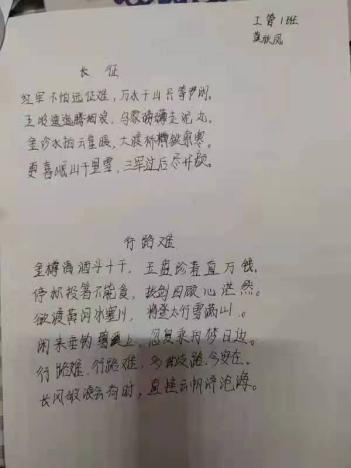 工管1班
长征
红军不怕远征难，万水千山只等闲。
五岭逶迤腾细浪，乌蒙磅礴走泥丸。
金沙水拍云崖暖，大渡桥横铁索寒。
更喜岷山千里雪，三军过后尽开颜。
行路难
金樽清酒斗十千，玉盘珍羞直万钱。
停杯投箸不能食，拔剑四顾心茫然。
欲渡黄河冰塞川，将登太行雪满山。
闲来垂钓碧溪上，忽复乘舟梦日边。
行路难，行路难，多歧路，今安在。
长风破浪会有时，直挂云帆济沧海。